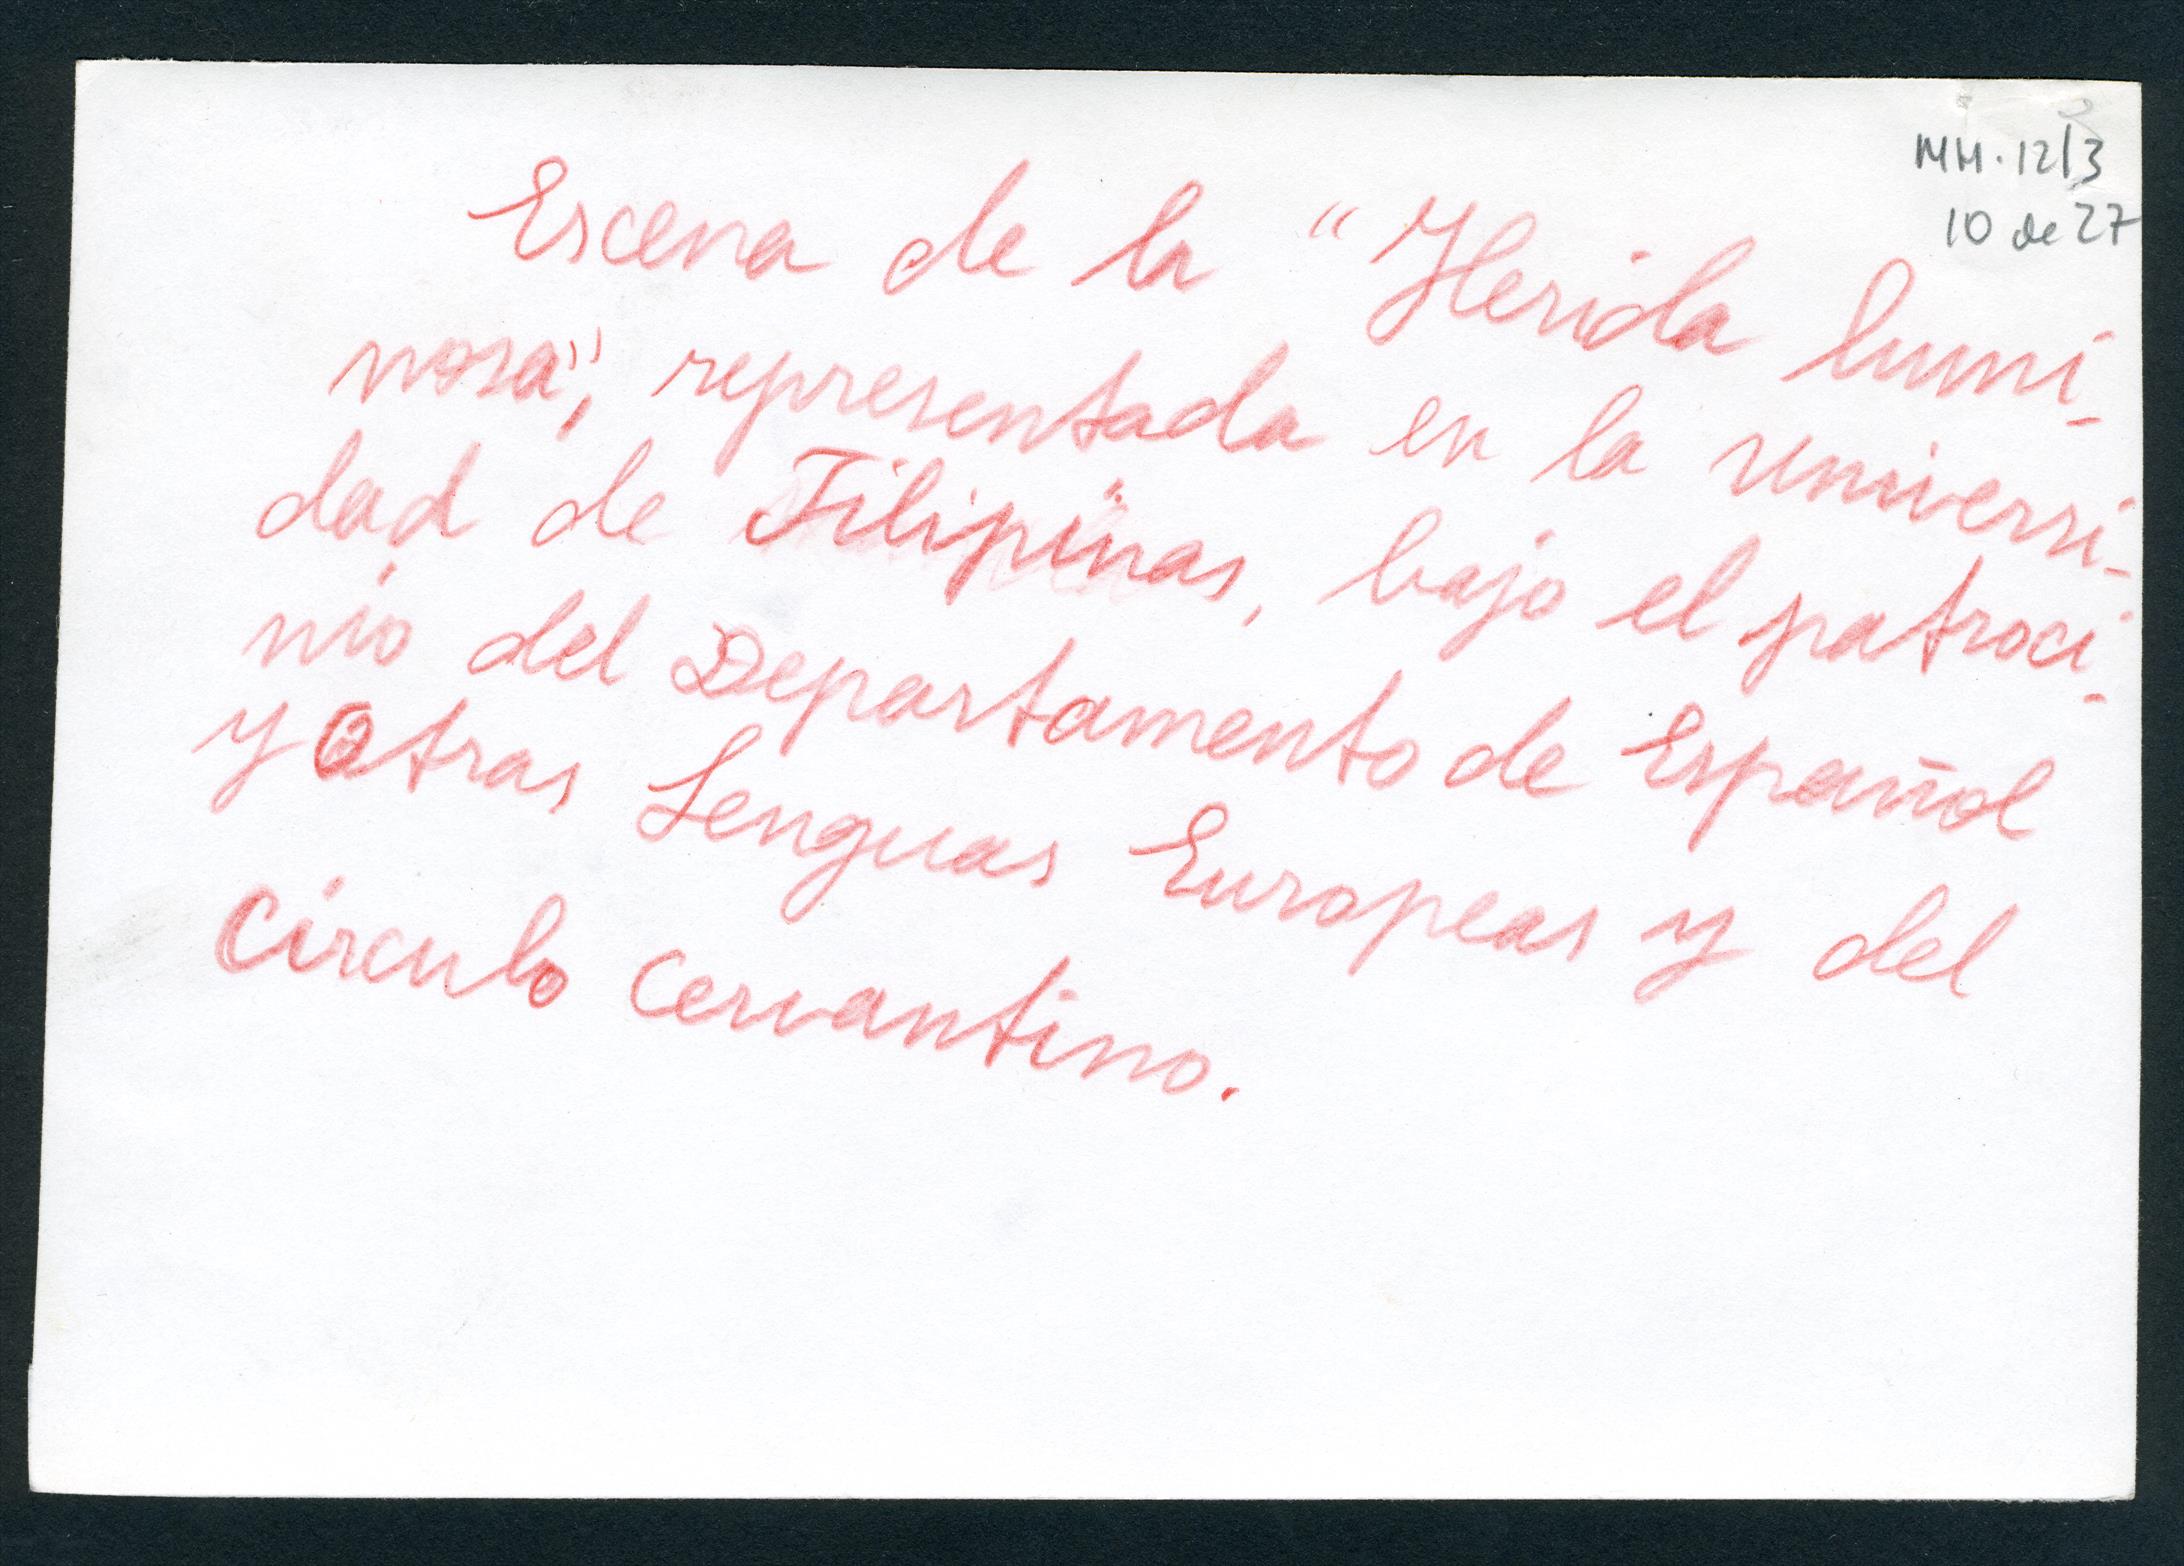 MM.12/3
10 de 27
Escena de la "Herida lumi-
nosa", representada en la Universi-
dad de Filipinas, bajo el patroci-
nio del Departamento de Español
y Otras Lenguas Europeas y del
Circulo Cervantino.